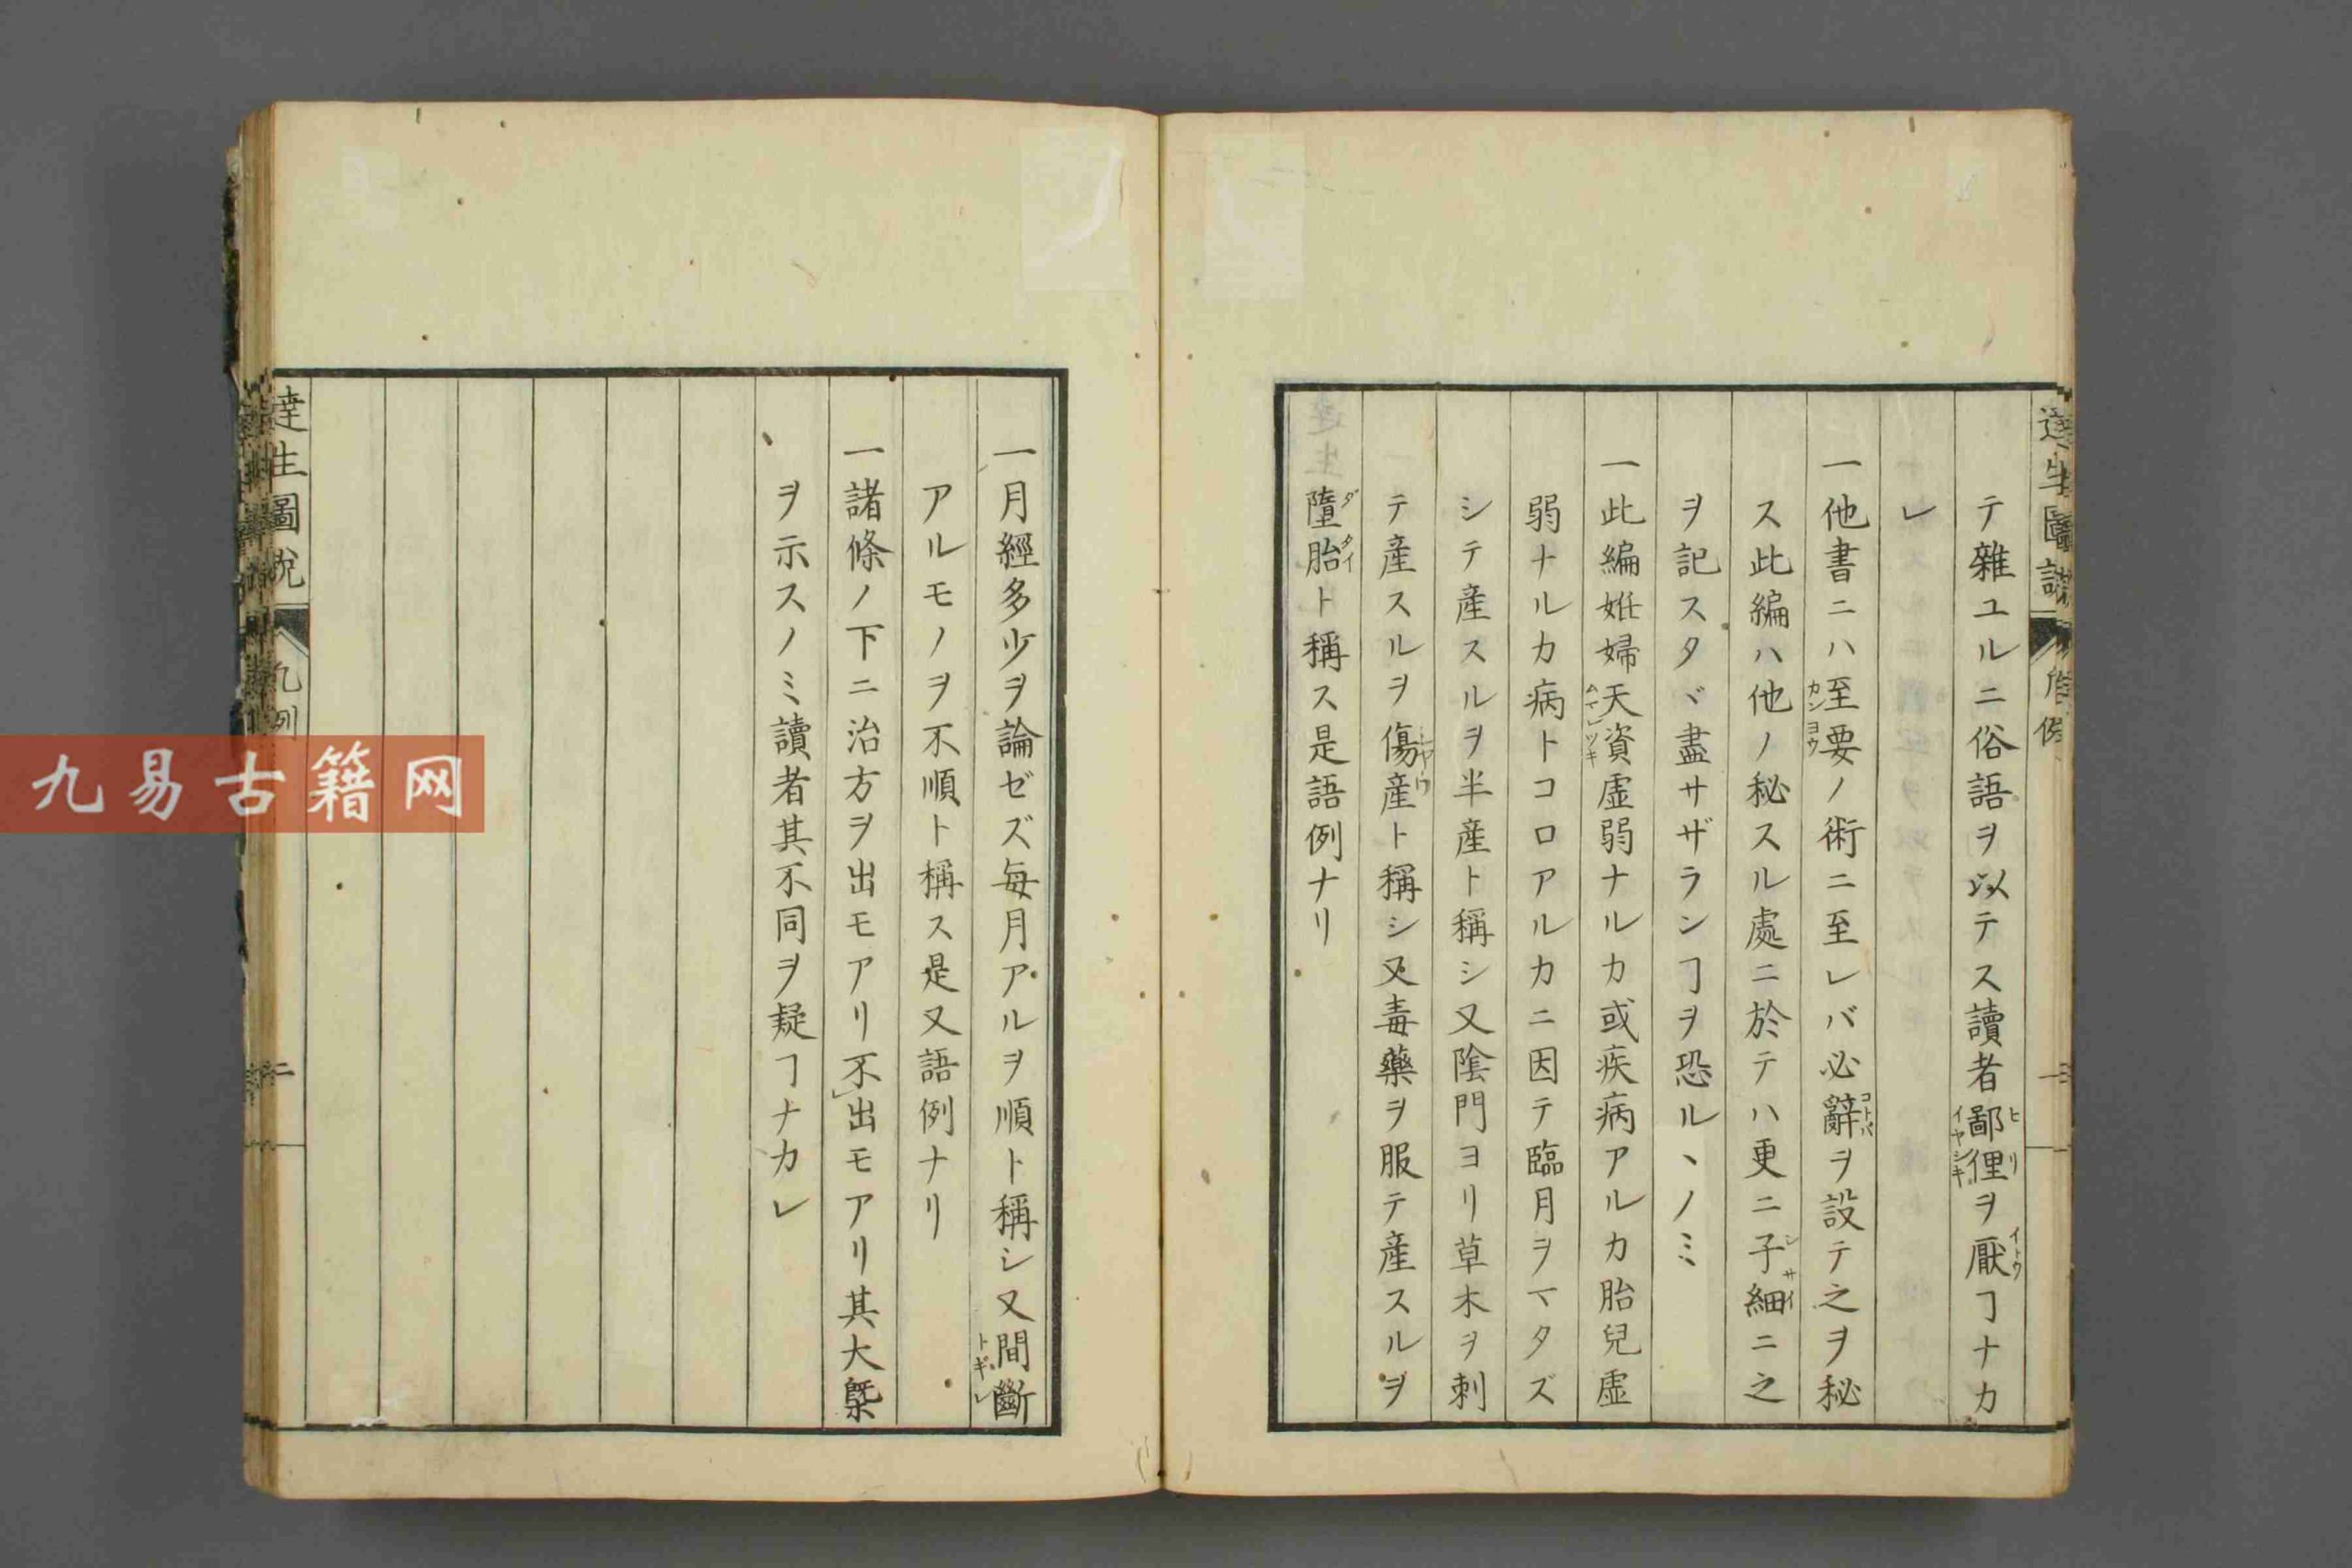 達生圖説 凡例
テ雜ユルニ俗語ヲ以テス讀者鄙俚ヲ厭ヿナカ
ヒリ
イヤシキ
イトウ
レ
一他書ニハ至要ノ術ニ至レバ必辭ヲ設テ之ヲ秘
カンヨウ
コトバ
ス此編ハ他ノ秘スル處ニ於テハ更ニ子細ニ之
シサイ
ヲ記スタヾ盡サザランヿヲ恐ルヽノミ
一此編姙婦天資虛弱ナルカ或疾病アルカ胎兒虛
ムマレツキ
弱ナルカ病トコロアルカニ因テ臨月ヲマタズ
シテ産スルヲ半産ト稱シ又陰門ヨリ草木ヲ刺
テ産スルヲ傷産ト稱シ又毒藥ヲ服テ産スルヲ
シヤウ
墮胎ト稱ス是語例ナリ
ダタイ
一月經多少ヲ論ゼズ毎月アルヲ順ト稱シ又間斷
トギレ
アルモノヲ不順ト稱ス是又語例ナリ
一諸條ノ下ニ治方ヲ出モアリ不出モアリ其大槩
ヲ示スノミ讀者其不同ヲ疑ヿナカレ
達生圖說 凡例 二
九易古籍网